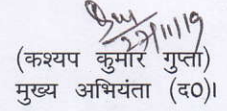 27/11/19
(कश्यप कुमार गुप्ता)
मुख्य अभियंता (द0)।